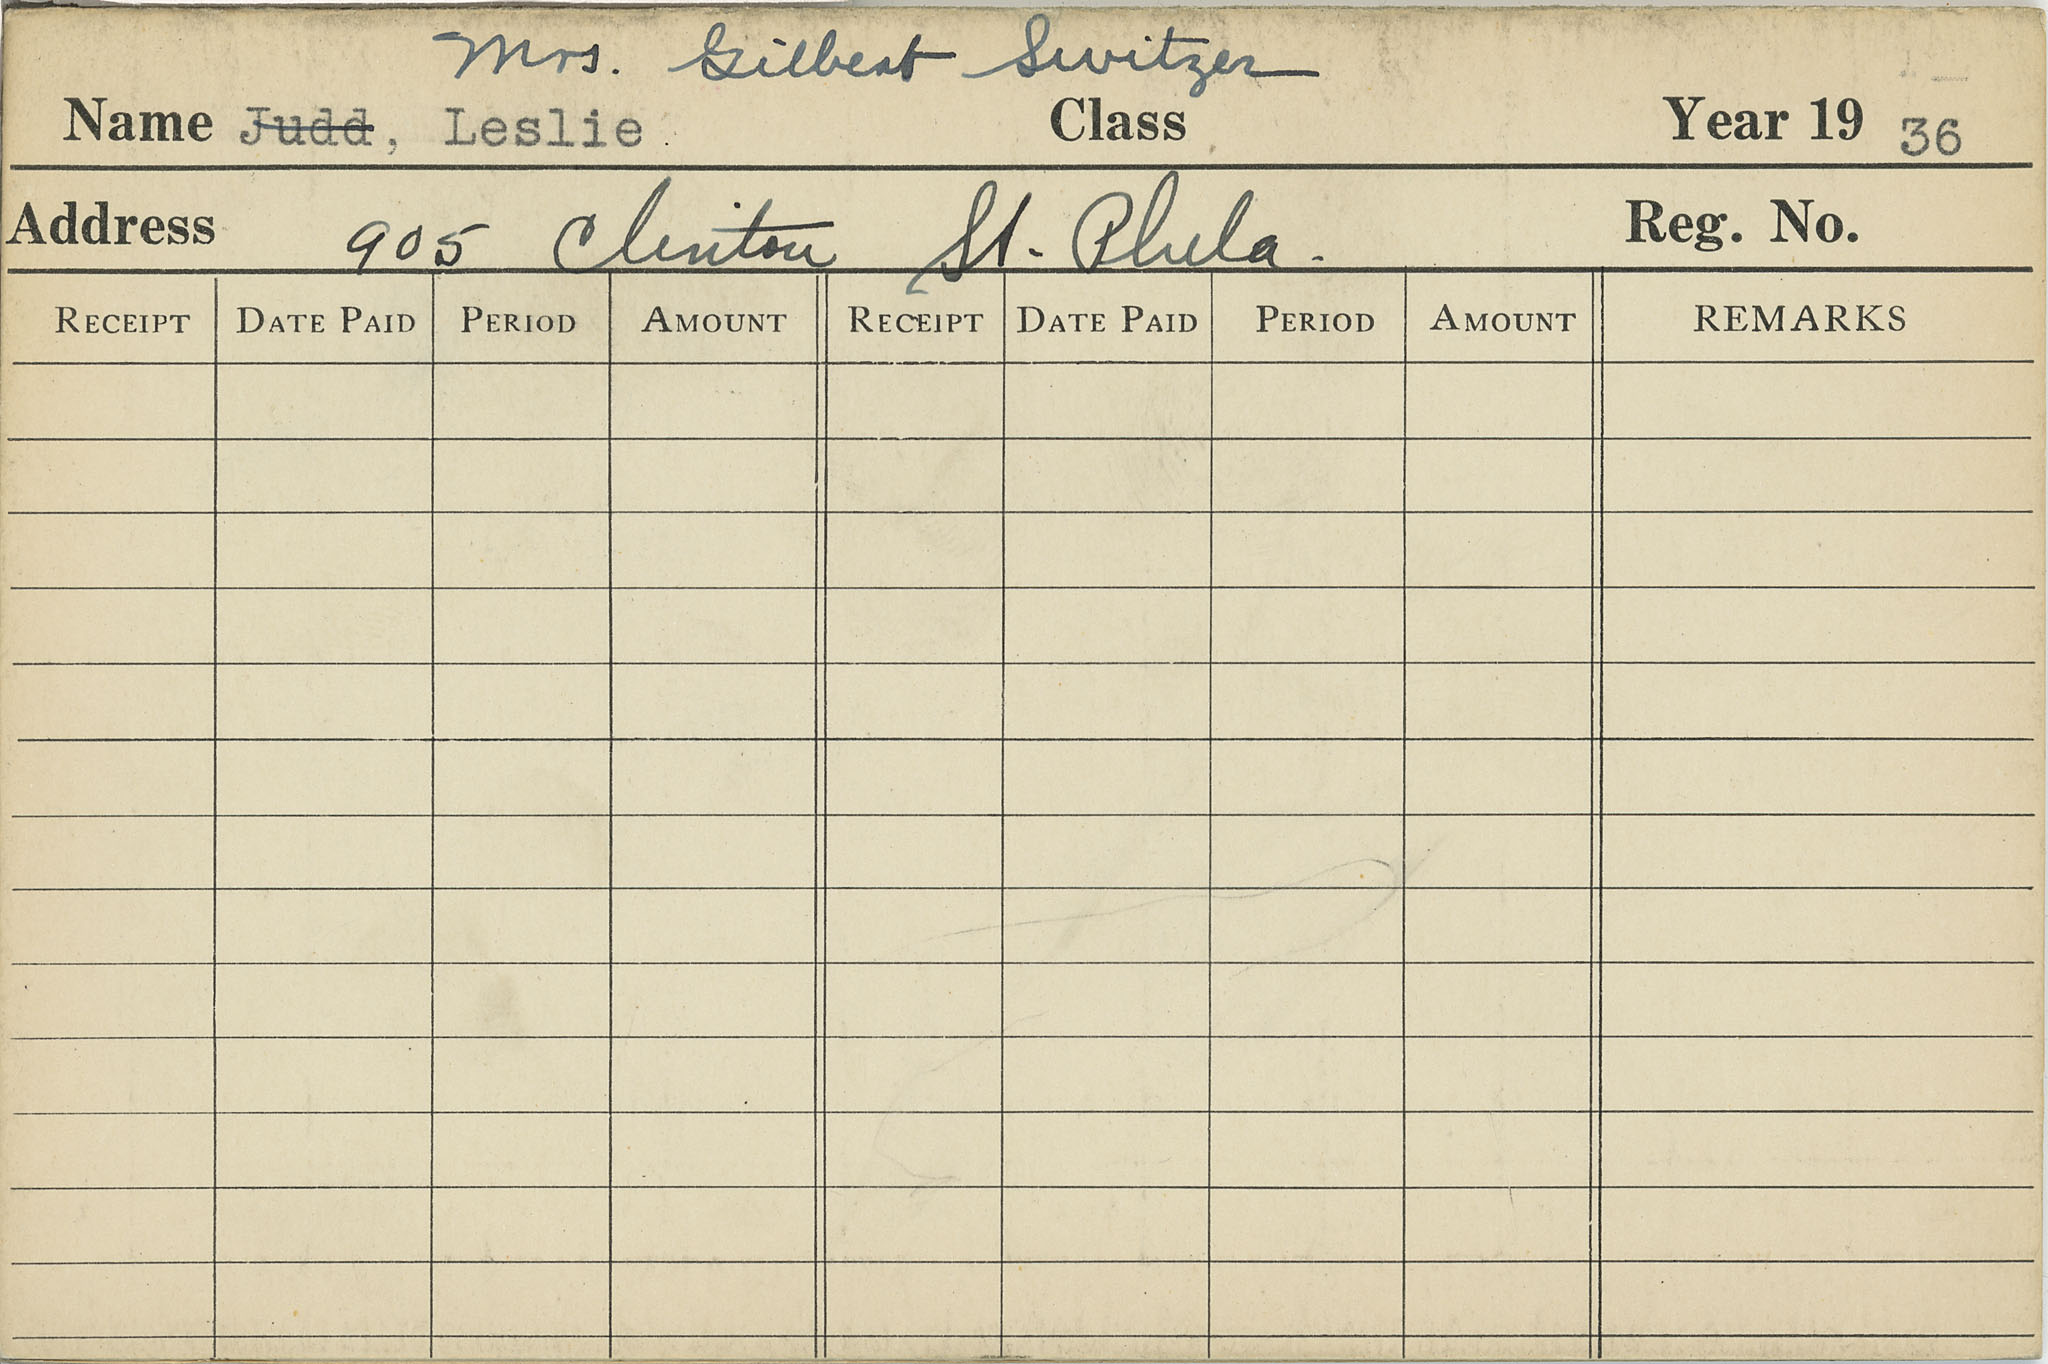 Mrs. Gilbert Switzer
Name Judd, Leslie Class Year 19 36
Address 905 Clinton St. Phila. Reg. No.
RECEIPT DATE PAID PERIOD AMOUNT RECEIPT DATE PAID PERIOD AMOUNT REMARKS